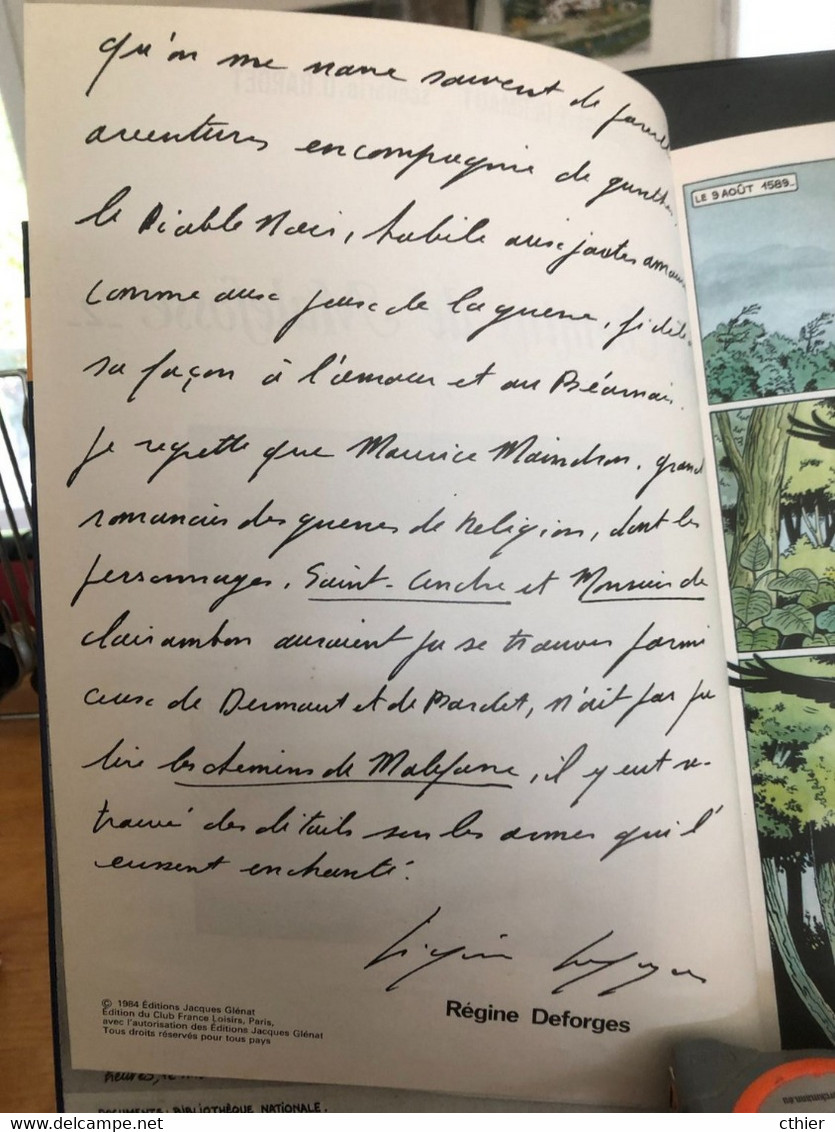 qu'on me narre souvent de
aventures en compagnie de
le Diable Noir, habile aux joutes
comme aux jeux de la guerre, fidèle
sa façon à l'amour et au Béarnais.
Je regrette que Maurice Maindron, grand
romancier des guerres de Religion, dont les
personnages, Saint-Cendre et Monsieur de
Clairambon auraient pu se trouver parmi
ceux de Dermaut et de Bardet, n'ait pas pu
lire les chemins de Malefosse, il y eut re-
trouvé des détails sur les armes qui l'
eussent enchanté.
© 1984 Éditions Jacques Glénat
Édition du Club France Loisirs, Paris,
avec l'autorisation des Éditions Jacques Glénat
Tous droits réservés pour tous pays
Régine Deforges
LE 9 AOÛT 1589...
heures,
DOCUMENTS: BIBLIOTHÈQUE NATIONALE.
cthier